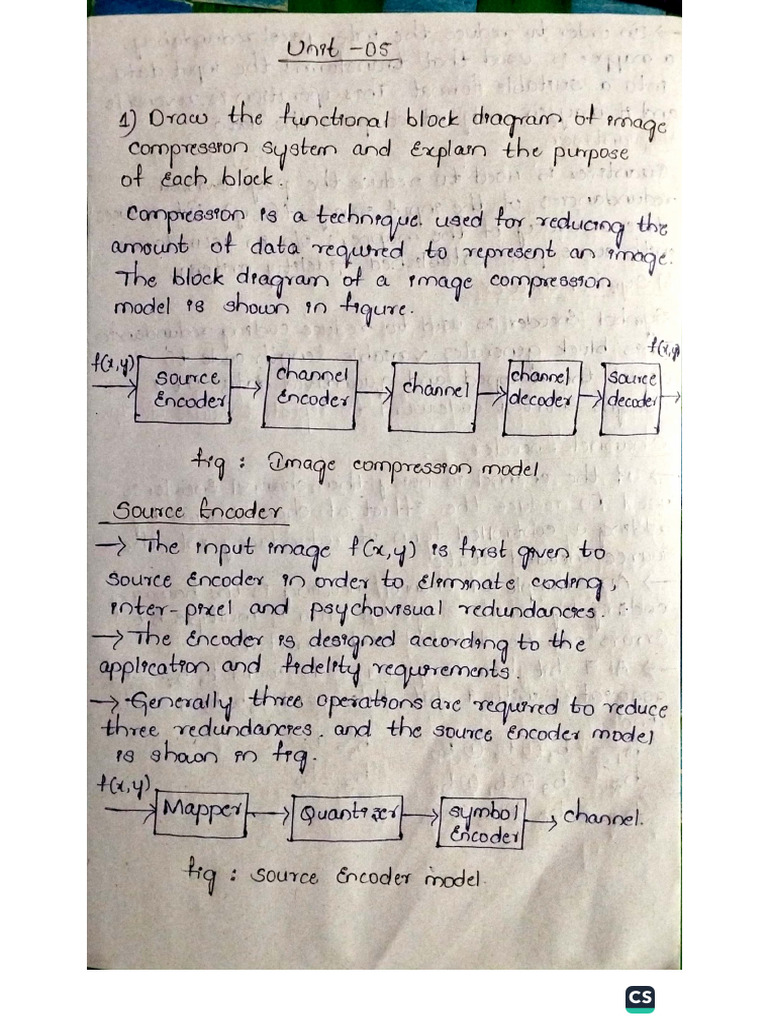 Unit -05
1) Draw the functional block diagram of image
compression system and Explain the purpose
of Each block.
Compression is a technique used for reducing the
amount of data required to represent an image.
The block diagram of a image compression
model is shown in figure.
f(x,y)
Source Encoder
channel Encoder
channel
channel decoder
source decoder
f(x,y)
fig : Image compression model.
Source Encoder
→ The input image f(x,y) is first given to
source Encoder in order to Eliminate coding,
inter-pixel and psychovisual redundancies.
→ The Encoder is designed according to the
application and fidelity requirements.
→ Generally three operations are required to reduce
three redundancies. and the source Encoder model
is shown in fig.
f(x,y)
Mapper
Quantizer
symbol Encoder
channel.
fig : source Encoder model.
CS